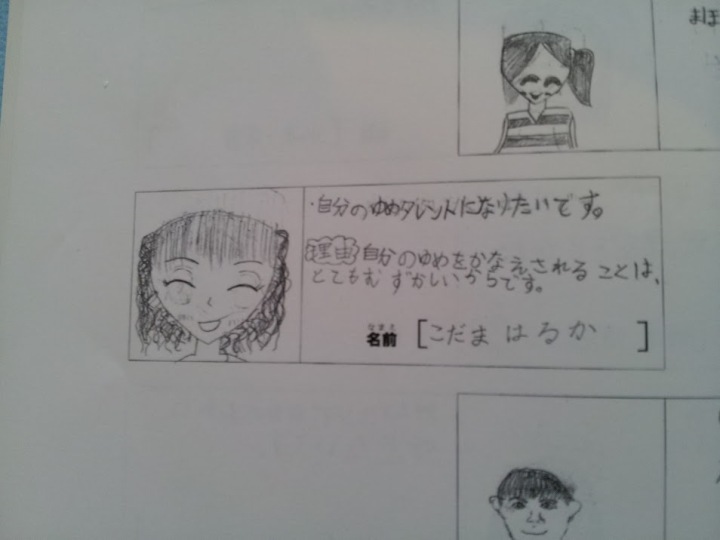 まほ
・自分のゆめタレントになりたいです。
理由 自分のゆめをかなえされることは、
とてもむずかしいからです。
なまえ
名前 [こだま はるか]